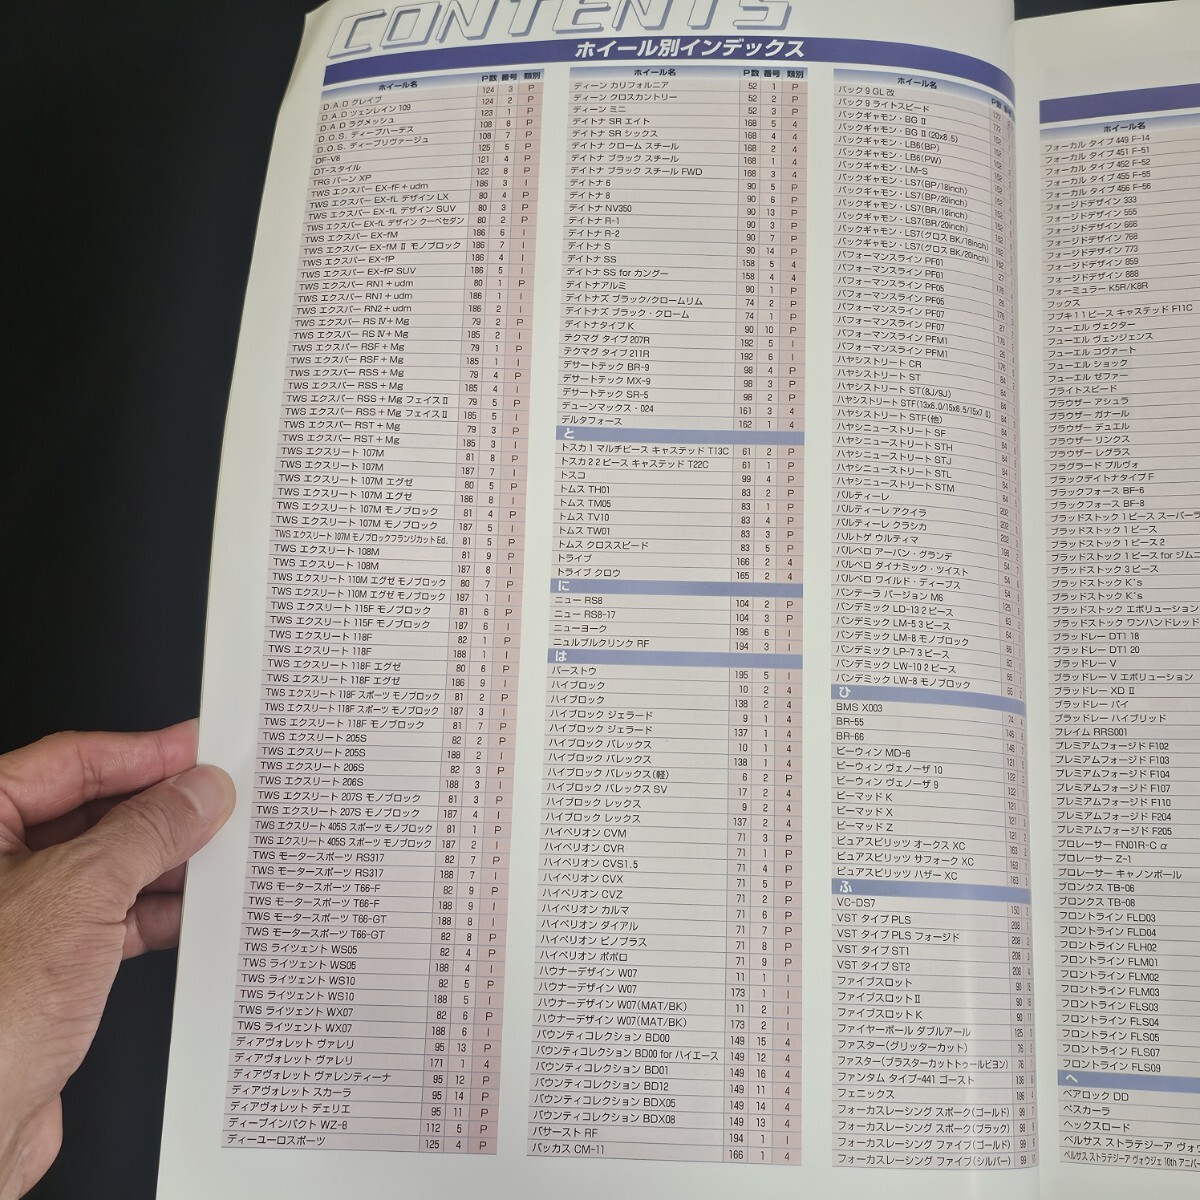 CONTENTS
ホイール別インデックス
ホイール名 P数 番号 類別
D.A.D グレイブ 124 3 P
D.A.D ツェンレイン 109 124 2 P
D.A.D ラグメッシュ 123 1 P
D.O.S. ディープハーデス 108 8 P
D.O.S. ディープリヴァージュ 108 7 P
DF-V8 125 5 P
DT-スタイル 121 4 P
TRG バーン XP 122 8 P
TWS エクスパー EX-fF+udm 186 3 I
TWS エクスパー EX-fL デザイン LX 80 4 P
TWS エクスパー EX-fL デザイン SUV 80 3 P
TWS エクスパー EX-fL デザイン クーペセダン 80 2 P
TWS エクスパー EX-fM 186 6 I
TWS エクスパー EX-fM Ⅱ モノブロック 186 7 I
TWS エクスパー EX-fP 186 4 I
TWS エクスパー EX-fP SUV 186 5 I
TWS エクスパー RN1+udm 80 1 P
TWS エクスパー RN1+udm 186 1 I
TWS エクスパー RN2+udm 186 2 I
TWS エクスパー RS Ⅳ+Mg 79 2 P
TWS エクスパー RS Ⅳ+Mg 185 2 I
TWS エクスパー RSF+Mg 79 1 P
TWS エクスパー RSF+Mg 185 1 I
TWS エクスパー RSS+Mg 79 4 P
TWS エクスパー RSS+Mg 185 4 I
TWS エクスパー RSS+Mg フェイスⅡ 79 5 P
TWS エクスパー RSS+Mg フェイスⅡ 185 5 I
TWS エクスパー RST+Mg 79 3 P
TWS エクスパー RST+Mg 185 3 I
TWS エクスリート 107M 81 8 P
TWS エクスリート 107M 187 7 I
TWS エクスリート 107M エグゼ 80 5 P
TWS エクスリート 107M エグゼ 186 8 I
TWS エクスリート 107M モノブロック 81 4 P
TWS エクスリート 107M モノブロック 187 5 I
TWS エクスリート 107M モノブロックフランジカットEd. 81 5 P
TWS エクスリート 108M 81 9 P
TWS エクスリート 108M 187 8 I
TWS エクスリート 110M エグゼ モノブロック 80 7 P
TWS エクスリート 110M エグゼ モノブロック 187 1 I
TWS エクスリート 115F モノブロック 81 6 P
TWS エクスリート 115F モノブロック 187 6 I
TWS エクスリート 118F 82 1 P
TWS エクスリート 118F 188 1 I
TWS エクスリート 118F エグゼ 80 6 P
TWS エクスリート 118F エグゼ 186 9 I
TWS エクスリート 118F スポーツ モノブロック 81 2 P
TWS エクスリート 118F スポーツ モノブロック 187 3 I
TWS エクスリート 118F モノブロック 81 7 P
TWS エクスリート 205S 82 2 P
TWS エクスリート 205S 188 2 I
TWS エクスリート 206S 82 3 P
TWS エクスリート 206S 188 3 I
TWS エクスリート 207S モノブロック 81 3 P
TWS エクスリート 207S モノブロック 187 4 I
TWS エクスリート 405S スポーツ モノブロック 81 1 P
TWS エクスリート 405S スポーツ モノブロック 187 2 I
TWS モータースポーツ RS317 82 7 P
TWS モータースポーツ RS317 188 7 I
TWS モータースポーツ T66-F 82 9 P
TWS モータースポーツ T66-F 188 9 I
TWS モータースポーツ T66-GT 188 8 I
TWS モータースポーツ T66-GT 82 8 P
TWS ライツェント WS05 82 4 P
TWS ライツェント WS05 188 4 I
TWS ライツェント WS10 82 5 P
TWS ライツェント WS10 188 5 I
TWS ライツェント WX07 82 6 P
TWS ライツェント WX07 188 6 I
ディアヴォレット ヴァレリ 95 13 P
ディアヴォレット ヴァレリ 171 1 4
ディアヴォレット ヴァレンティーナ 95 12 P
ディアヴォレット スカーラ 95 14 P
ディアヴォレット デュリエ 95 11 P
ディープインパクト WZ-8 112 5 P
ディーユーロスポーツ 125 4 P
ホイール名 P数 番号 類別
ディーン カリフォルニア 52 1 P
ディーン クロスカントリー 52 2 P
ディーン ミニ 52 3 P
デイトナ SR エイト 168 5 4
デイトナ SR シックス 168 4 4
デイトナ クローム スチール 168 2 4
デイトナ ブラック スチール 168 1 4
デイトナ ブラック スチール FWD 168 3 4
デイトナ 6 90 5 P
デイトナ 8 90 6 P
デイトナ NV350 90 13 P
デイトナ R-1 90 3 P
デイトナ R-2 90 7 P
デイトナ S 90 14 P
デイトナ SS 158 5 4
デイトナ SS for カングー 158 4 4
デイトナアルミ 90 1 P
デイトナズ ブラック/クロームリム 74 2 P
デイトナズ ブラック・クローム 74 1 P
デイトナタイプ K 90 10 P
テクマグ タイプ 207R 192 5 I
テクマグ タイプ 211R 192 6 I
デザートテック BR-9 98 4 P
デザートテック MX-9 98 3 P
デザートテック SR-5 98 2 P
デューンマックス・024 161 3 4
デルタフォース 162 1 4
と
トスカ1 マルチピース キャステッド T13C 61 2 P
トスカ2 2ピース キャステッド T22C 61 1 P
トスコ 99 4 P
トムス TH01 83 2 P
トムス TM05 83 1 P
トムス TV10 83 4 P
トムス TW01 83 3 P
トムス クロススピード 83 5 P
トライブ 166 2 4
トライブ クロウ 165 2 4
に
ニュー RS8 104 2 P
ニュー RS8-17 104 3 P
ニューヨーク 196 6 I
ニュルブルクリンク RF 194 3 I
は
バーストウ 195 5 I
ハイブロック 10 2 4
ハイブロック 138 2 4
ハイブロック ジェラード 9 1 4
ハイブロック ジェラード 137 1 4
ハイブロック バレックス 10 1 4
ハイブロック バレックス 138 1 4
ハイブロック バレックス(軽) 6 2 P
ハイブロック バレックス SV 17 2 4
ハイブロック レックス 9 2 4
ハイブロック レックス 137 2 4
ハイペリオン CVM 71 3 P
ハイペリオン CVR 71 1 P
ハイペリオン CVS1.5 71 4 P
ハイペリオン CVX 71 5 P
ハイペリオン CVZ 71 2 P
ハイペリオン カルマ 71 6 P
ハイペリオン ダイアル 71 7 P
ハイペリオン ピノプラス 71 8 P
ハイペリオン ポポロ 71 9 P
ハウナーデザイン W07 11 1 I
ハウナーデザイン W07 173 1 I
ハウナーデザイン W07(MAT/BK) 11 2 I
ハウナーデザイン W07(MAT/BK) 173 2 I
バウンティコレクション BD00 149 15 4
バウンティコレクション BD00 for ハイエース 149 12 4
バウンティコレクション BD01 149 16 4
バウンティコレクション BD12 149 11 4
バウンティコレクション BDX05 149 14 4
バウンティコレクション BDX08 149 13 4
バサースト RF 194 1 I
バッカス CM-11 166 1 4
ホイール名 P数
バック9 GL 改
バック9 ライトスピード
バックギャモン・BG Ⅱ
バックギャモン・BG Ⅱ (20x8.5)
バックギャモン・LB6(BP)
バックギャモン・LB6(PW)
バックギャモン・LM-S
バックギャモン・LS7(BP/18inch)
バックギャモン・LS7(BP/20inch)
バックギャモン・LS7(BR/18inch)
バックギャモン・LS7(BR/20inch)
バックギャモン・LS7(グロス BK/18inch)
バックギャモン・LS7(グロス BK/20inch)
パフォーマンスライン PF01
パフォーマンスライン PF01
パフォーマンスライン PF05
パフォーマンスライン PF05
パフォーマンスライン PF07
パフォーマンスライン PF07
パフォーマンスライン PFM1
パフォーマンスライン PFM1
ハヤシストリート CR
ハヤシストリート ST
ハヤシストリート ST(8J/9J)
ハヤシストリート STF(13x6.0/15x6.5/15x7.0)
ハヤシストリート STF(他)
ハヤシニューストリート SF
ハヤシニューストリート STH
ハヤシニューストリート STJ
ハヤシニューストリート STL
ハヤシニューストリート STM
バルティーレ
バルティーレ アクイラ
バルティーレ クラシカ
ハルトゲ ウルティマ
バルベロ アーバン・グランデ
バルベロ ダイナミック・ツイスト
バルベロ ワイルド・ディープス
バンテーラ バージョン M6
パンデミック LD-13 2ピース
パンデミック LM-5 3ピース
パンデミック LM-8 モノブロック
パンデミック LP-7 3ピース
パンデミック LW-10 2ピース
パンデミック LW-8 モノブロック
ひ
BMS X003
BR-55
BR-66
ビーウィン MD-6
ビーウィン ヴェノーザ 10
ビーウィン ヴェノーザ 9
ビーマッド K
ビーマッド X
ビーマッド Z
ピュアスピリッツ オークス XC
ピュアスピリッツ サフォーク XC
ピュアスピリッツ ハザー XC
ふ
VC-DS7
VST タイプ PLS
VST タイプ PLS フォージド
VST タイプ ST1
VST タイプ ST2
ファイブスロット
ファイブスロットⅡ
ファイブスロット K
ファイヤーボール ダブルアール
ファスター(グリッターカット)
ファスター(ブラスターカットトゥールビヨン)
ファンタム タイプ-441 ゴースト
フェニックス
フォーカスレーシング スポーク(ゴールド)
フォーカスレーシング スポーク(ブラック)
フォーカスレーシング ファイブ(ゴールド)
フォーカスレーシング ファイブ(シルバー)
ホイール名
フォーカル タイプ 449 F-14
フォーカル タイプ 451 F-51
フォーカル タイプ 452 F-52
フォーカル タイプ 455 F-55
フォーカル タイプ 456 F-56
フォージドデザイン 333
フォージドデザイン 555
フォージドデザイン 666
フォージドデザイン 768
フォージドデザイン 773
フォージドデザイン 859
フォージドデザイン 888
フォーミュラー K5R/K8R
フックス
フブキ1 1ピース キャステッド F11C
フューエル ヴェクター
フューエル ヴェンジェンス
フューエル コヴァート
フューエル ショック
フューエル ゼファー
ブライトスピード
ブラウザー アシュラ
ブラウザー ガナール
ブラウザー デュエル
ブラウザー リンクス
ブラウザー レグラス
フラグラード ブルヴォ
ブラックデイトナタイプ F
ブラックフォース BF-6
ブラックフォース BF-8
ブラッドストック 1ピース スーパーラ
ブラッドストック 1ピース
ブラッドストック 1ピース 2
ブラッドストック 1ピース for ジムニ
ブラッドストック 3ピース
ブラッドストック K's
ブラッドストック K's
ブラッドストック エボリューション
ブラッドストック ワンハンドレッド
ブラッドレー DT1 18
ブラッドレー DT1 20
ブラッドレー V
ブラッドレー V エボリューション
ブラッドレー XD Ⅱ
ブラッドレー パイ
ブラッドレー ハイブリッド
フレイム RRS001
プレミアムフォージド F102
プレミアムフォージド F103
プレミアムフォージド F104
プレミアムフォージド F107
プレミアムフォージド F110
プレミアムフォージド F204
プレミアムフォージド F205
プロレーサー FN01R-C α
プロレーサー Z-1
プロレーサー キャノンボール
ブロンクス TB-06
ブロンクス TB-08
フロントライン FLD03
フロントライン FLD04
フロントライン FLH02
フロントライン FLM01
フロントライン FLM02
フロントライン FLM03
フロントライン FLS03
フロントライン FLS04
フロントライン FLS05
フロントライン FLS07
フロントライン FLS09
へ
ベアロック DD
ベスカーラ
ヘックスロード
ベルサス ストラテジーア ヴォウ
ベルサス ストラテジーア ヴォウジェ 10th アニバー